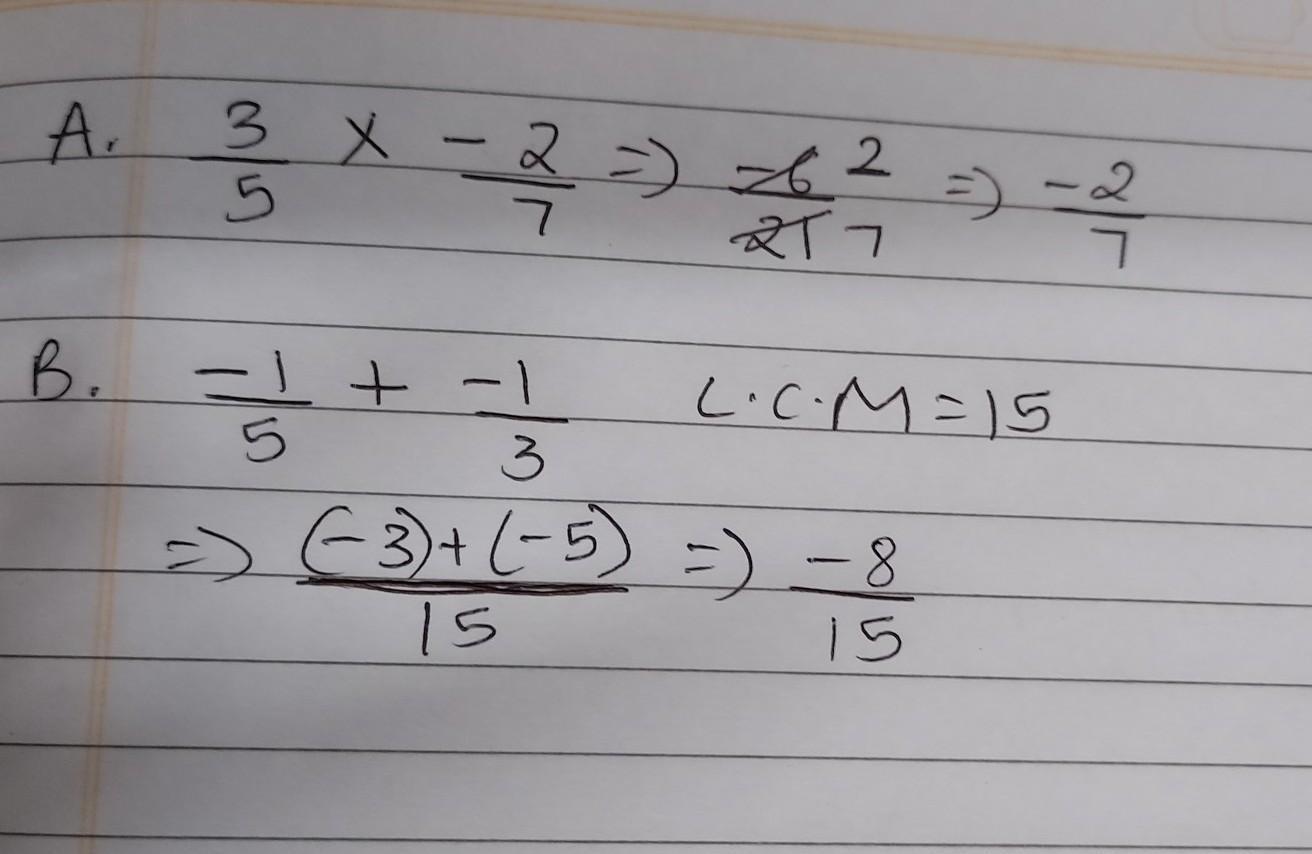 A. 3/5 × -2/7 => -6/21 2/7 => -2/7
B. -1/5 + -1/3 L.C.M = 15
=> (-3)+(-5)/15 => -8/15